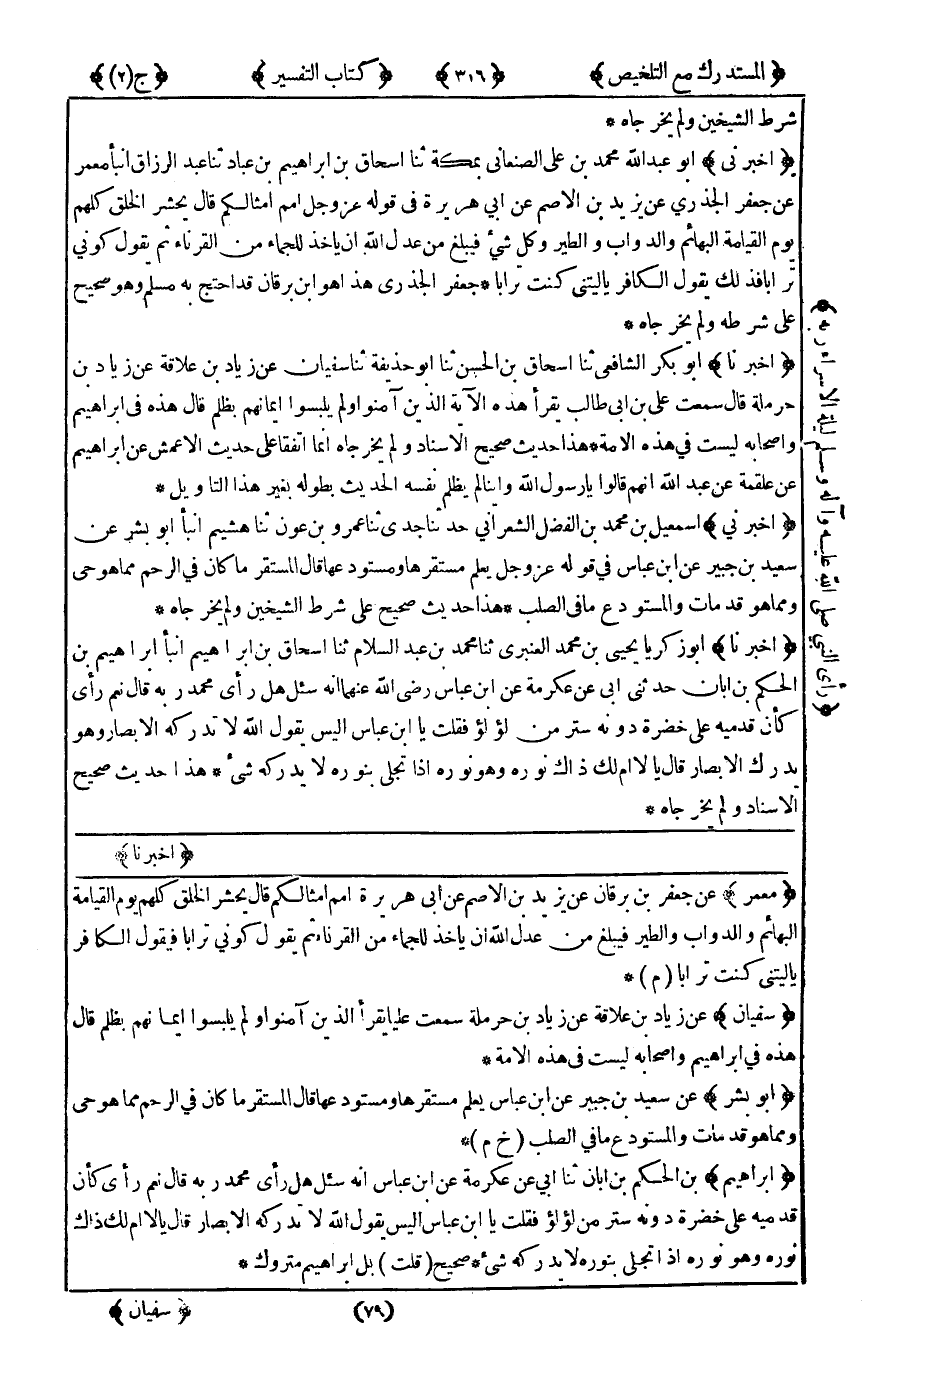 ﴿ المستدرك مع التلخيص ﴾ ﴿ ٣١٦ ﴾ ﴿ كتاب التفسير ﴾ ﴿ ج(٢) ﴾
شرط الشيخين ولم يخرجاه *
﴿ اخبرنى ﴾ ابو عبدالله محمد بن على الصنعانى بمكة ثنا اسحاق بن ابراهيم بن عباد ثنا عبد الرزاق انبأ معمر
عن جعفر الجذري عن يزيد بن الاصم عن ابي هريرة فى قوله عزوجل امم امثالكم قال يحشر الخلق كلهم
يوم القيامة البهائم والدواب والطير وكل شئ فيبلغ من عدل الله ان ياخذ للجماء من القرناء ثم يقول كوني
ترابا فذلك يقول الكافر ياليتنى كنت ترابا * جعفر الجذرى هذا هو ابن برقان قد احتج به مسلم وهو صحيح
على شرطه ولم يخرجاه *
﴿ اخبرنا ﴾ ابو بكر الشافعى ثنا اسحاق بن الحسن ثنا ابو حذيفة ثنا سفيان عن زياد بن علاقة عن زياد بن
حرملة قال سمعت على بن ابى طالب يقرأ هذه الآية الذين آمنوا ولم يلبسوا ايمانهم بظلم قال هذه فى ابراهيم
واصحابه ليست في هذه الامة * هذا حديث صحيح الاسناد ولم يخرجاه انما اتفقا على حديث الاعمش عن ابراهيم
عن علقمة عن عبد الله انهم قالوا يارسول الله واينالم يظلم نفسه الحديث بطوله بغير هذا التاويل *
﴿ اخبرني ﴾ اسمعيل بن محمد بن الفضل الشعراني حدثنا جدى ثنا عمرو بن عون ثنا هشيم انبأ ابو بشر عن
سعيد بن جبير عن ابن عباس في قوله عزوجل يعلم مستقرها ومستودعها قال المستقر ما كان في الرحم مما هو حى
ومما هو قدمات والمستودع مافى الصلب * هذا حديث صحيح على شرط الشيخين ولم يخرجاه *
﴿ اخبرنا ﴾ ابوزكريا يحيى بن محمد العنبرى ثنا محمد بن عبد السلام ثنا اسحاق بن ابراهيم انبأ ابراهيم بن
الحكم بن ابان حدثنى ابى عن عكرمة عن ابن عباس رضى الله عنهما انه سئل هل رأى محمد ربه قال نعم رأى
كأن قدميه على خضرة دونه ستر من لؤلؤ فقلت يا ابن عباس اليس يقول الله لا تدركه الابصار وهو
يدرك الابصار قال يا لا ام لك ذاك نوره وهو نوره اذا تجلى بنوره لا يدركه شئ * هذا حديث صحيح
الاسناد ولم يخرجاه *
﴿ اخبرنا ﴾
﴿ معمر ﴾ عن جعفر بن برقان عن يزيد بن الاصم عن ابى هريرة امم امثالكم قال يحشر الخلق كلهم يوم القيامة
البهائم والدواب والطير فيبلغ من عدل الله ان ياخذ للجماء من القرناء ثم يقول كوني ترابا فيقول الكافر
ياليتنى كنت ترابا (م) *
﴿ سفيان ﴾ عن زياد بن علاقة عن زياد بن حرملة سمعت عليا يقرأ الذين آمنوا ولم يلبسوا ايمانهم بظلم قال
هذه في ابراهيم واصحابه ليست فى هذه الامة *
﴿ ابو بشر ﴾ عن سعيد بن جبير عن ابن عباس يعلم مستقرها ومستودعها قال المستقر ما كان في الرحم مما هو حى
ومما هو قدمات والمستودع مافي الصلب (خ م) *
﴿ ابراهيم ﴾ بن الحكم بن ابان ثنا ابي عن عكرمة عن ابن عباس انه سئل هل رأى محمد ربه قال نعم رأى كأن
قدميه على خضرة دونه ستر من لؤلؤ فقلت يا ابن عباس اليس يقول الله لا تدركه الابصار قال يالا ام لك ذاك
نوره وهو نوره اذا تجلى بنوره لا يدركه شئ * صحيح (قلت) بل ابراهيم متروك *
(٧٩) ﴿ سفيان ﴾
﴿ رأى النبي صلى الله عليه وآله وسلم ليلة الاسراء ربه ﴾